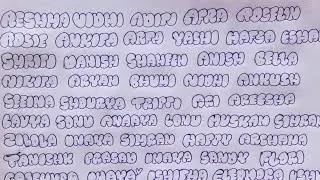 RESHMA VIDHI ADITI ARPA ROSELIN
ROSIE ANKITA ARPA YASHI HAFSA ESHA
SHRITI MANISH SHAHEEN ANISH BELLA
NIKITA ARYAN BHUMI NIDHI ANKUSH
SEEMA SHOURYA TRIPTI AZI AREESHA
LAVYA SONU ANAAYA LONU MUSKAN SIMRAN
ZULOLA INAYA SIMRAN HAPPY ARCHANA
TANISHK PRASAN INAYA SANDY FLORI